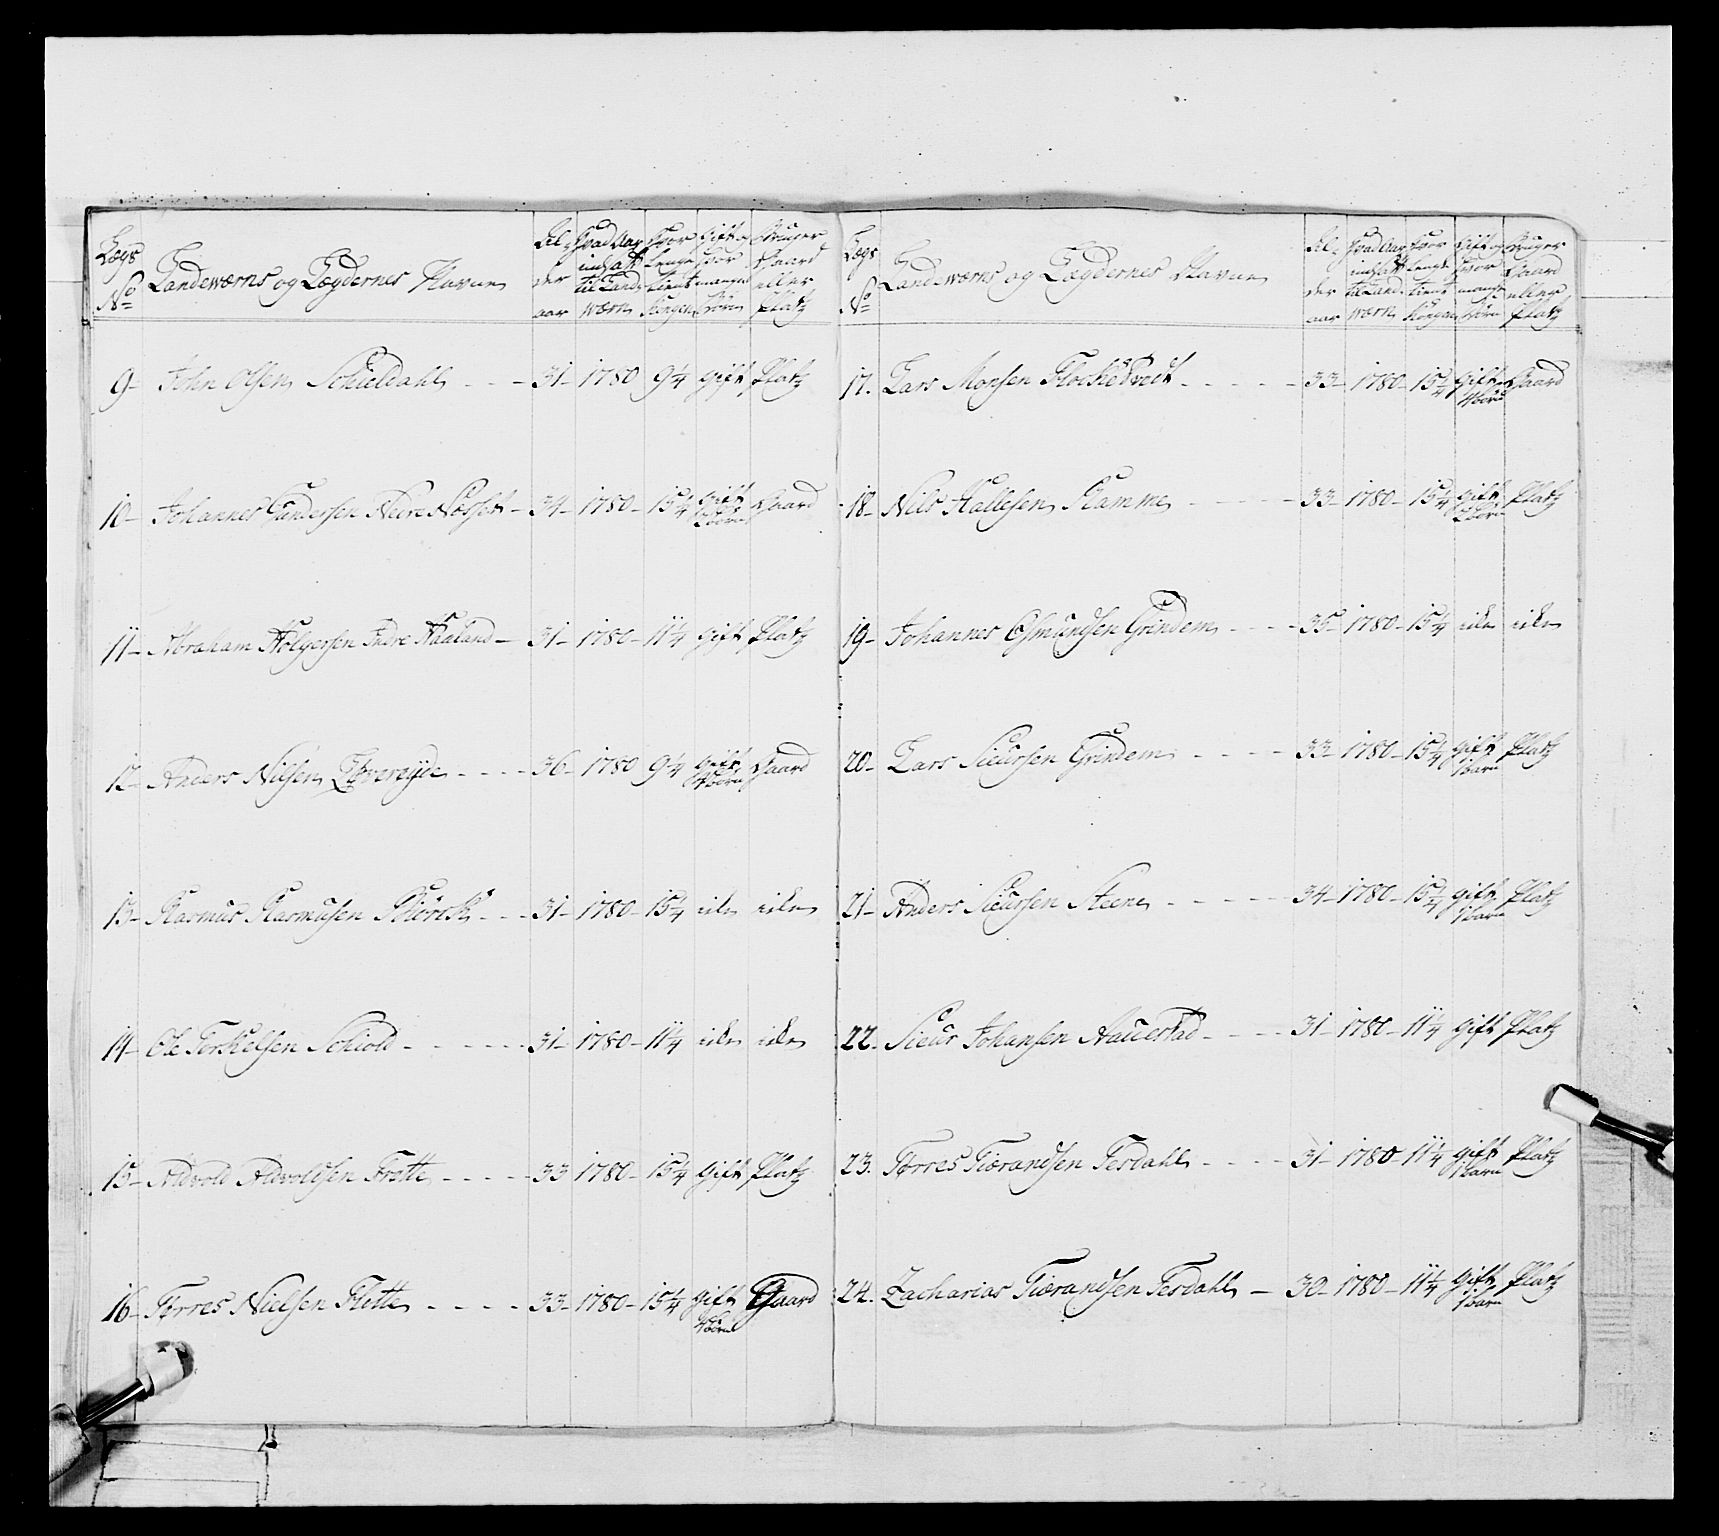 Lægs No Landewærns og Lægdernes Navne Al-der aar Hvad Aar indsatt til Land-wærn Hvor Lenge tient Kongen Gift og Hvor mange Børn Bruger Gaard eller Platz
9- John Olsen Schieldahl - - - 31- 1780 9 1/4 gift Platz
10- Johannes Gundersen Nedre Næsset - 34- 1780- 15 1/4 gift Børn Gaard
11- Abraham Holgersen Indre Haaland - 31- 1780- 11 1/4 gift Platz
12- Anders Nilsen - - - - 36- 1780 9 1/4 gift Børn Gaard
13- Rasmus Rasmusen - - - 31- 1780- 15 1/4 icke icke
14- Ole Torkelsen Schiold - - - - - - 31- 1780- 11 1/4 icke icke
15- Advold Advoldsen Frette - - - - - 33 1780- 15 1/4 Gift Platz
16- Tørres Nielsen Flitte - - - - 33- 1780- 15 1/4 gift Børn Gaard
Lægs No Landewærns og Lægdernes Navne Al-der aar Hvad Aar indsatt til Land-wærn Hvor Lenge tient Kongen Gift og Hvor mange Børn Bruger Gaard eller Platz
17. Lars Monsen - - - - - 33- 1780- 15 1/4 gift Børn Gaard
18- Nils Hallesen Ramme - - - - - 33- 1780- 15 1/4 gift 2 Børn Platz
19- Johannes Osmundsen Grindem - - - - 35- 1780- 15 1/4 icke icke
20- Lars Siursen Grindem - - - - 33- 1780- 15 1/4 gift 1 barn Platz
21- Anders Siursen Steene - - - - - - 34- 1780- 15 1/4 gift 1 barn Platz
22. Siur Johansen - - - - 31- 1780- 11 1/4 gift Platz
23. Tørres Tiærandsen Tesdahl - - - - 31- 1780- 11 1/4 gift 1 barn Platz
24. Zacharias Tiærandsen Tesdahl - 30- 1780- 11 1/4 Gift 1 barn Platz